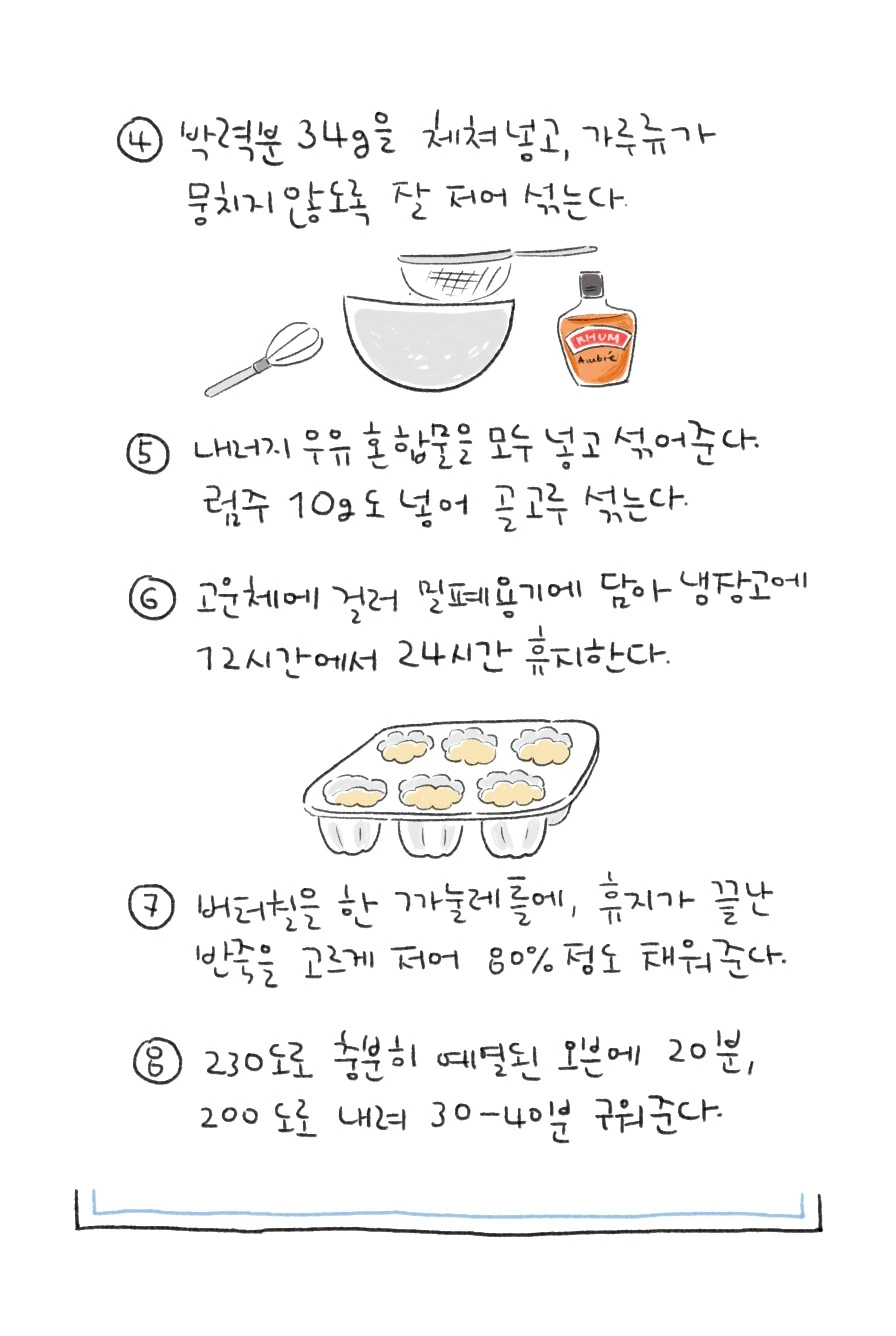 ④ 박력분 34g을 체쳐 넣고, 가루류가
뭉치지 않도록 잘 저어 섞는다.
RHUM
Ambré
⑤ 나머지 우유 혼합물을 모두 넣고 섞어준다.
럼주 10g도 넣어 골고루 섞는다.
⑥ 고운체에 걸러 밀폐용기에 담아 냉장고에
12시간에서 24시간 휴지한다.
⑦ 버터칠을 한 까눌레틀에, 휴지가 끝난
반죽을 고르게 저어 80% 정도 채워준다.
⑧ 230도로 충분히 예열된 오븐에 20분,
200도로 내려 30-40분 구워준다.